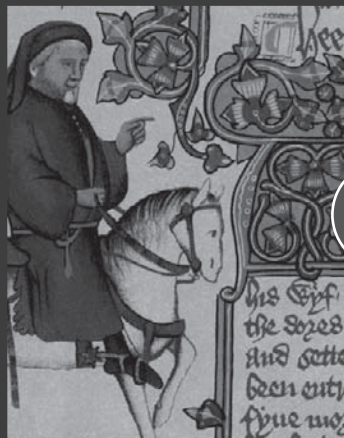 his Wyf
the dores
and sette
been entr
fyue mo